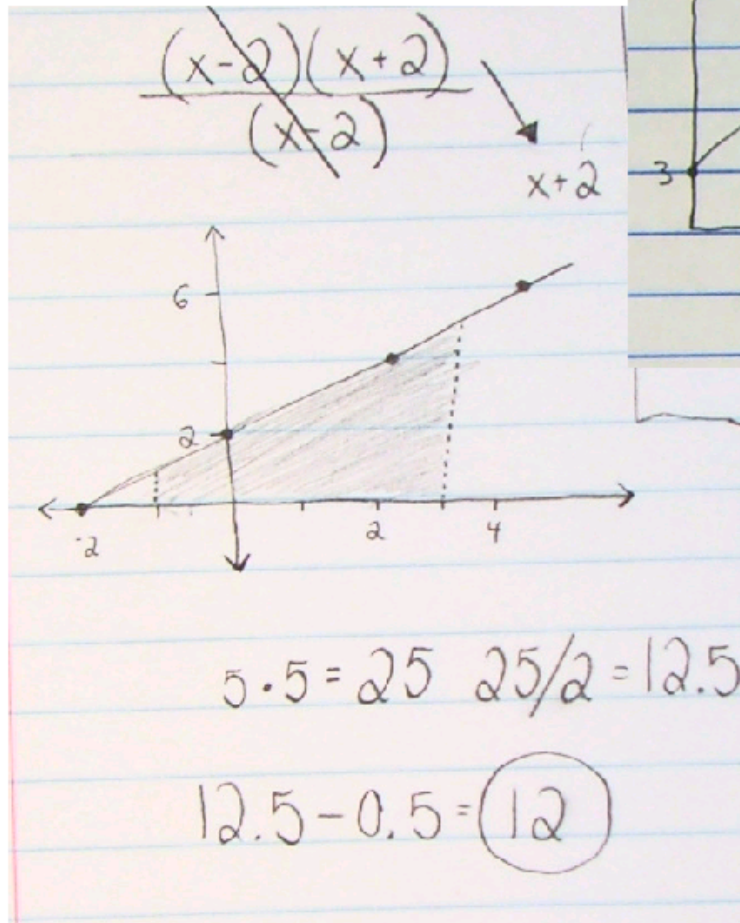 (x-2)(x+2)
(x-2)
x+2
3
6
2
-2
2
4
5·5=25 25/2=12.5
12.5-0.5=12